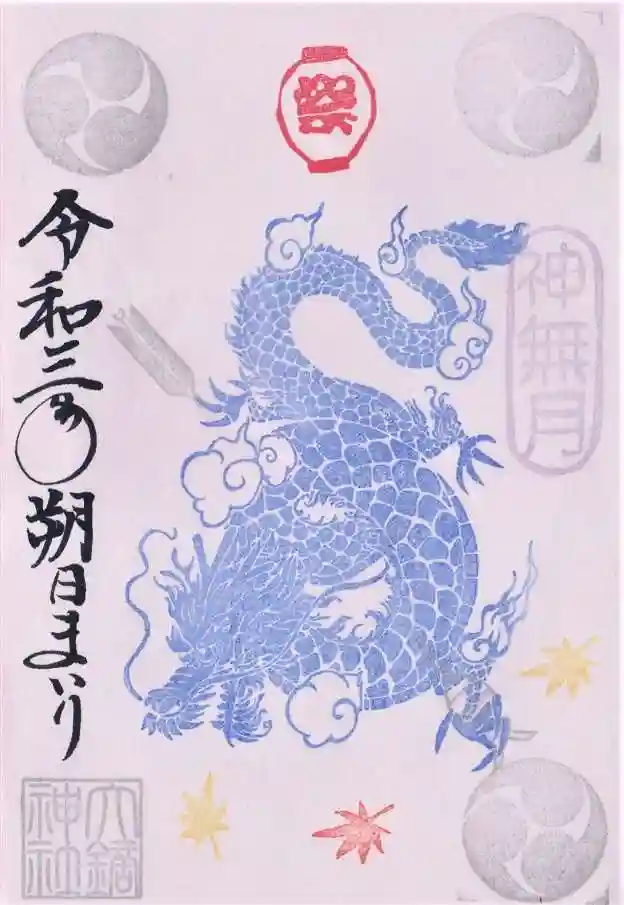 祭
神無月
令和三年朔日まいり
大鏑
神社